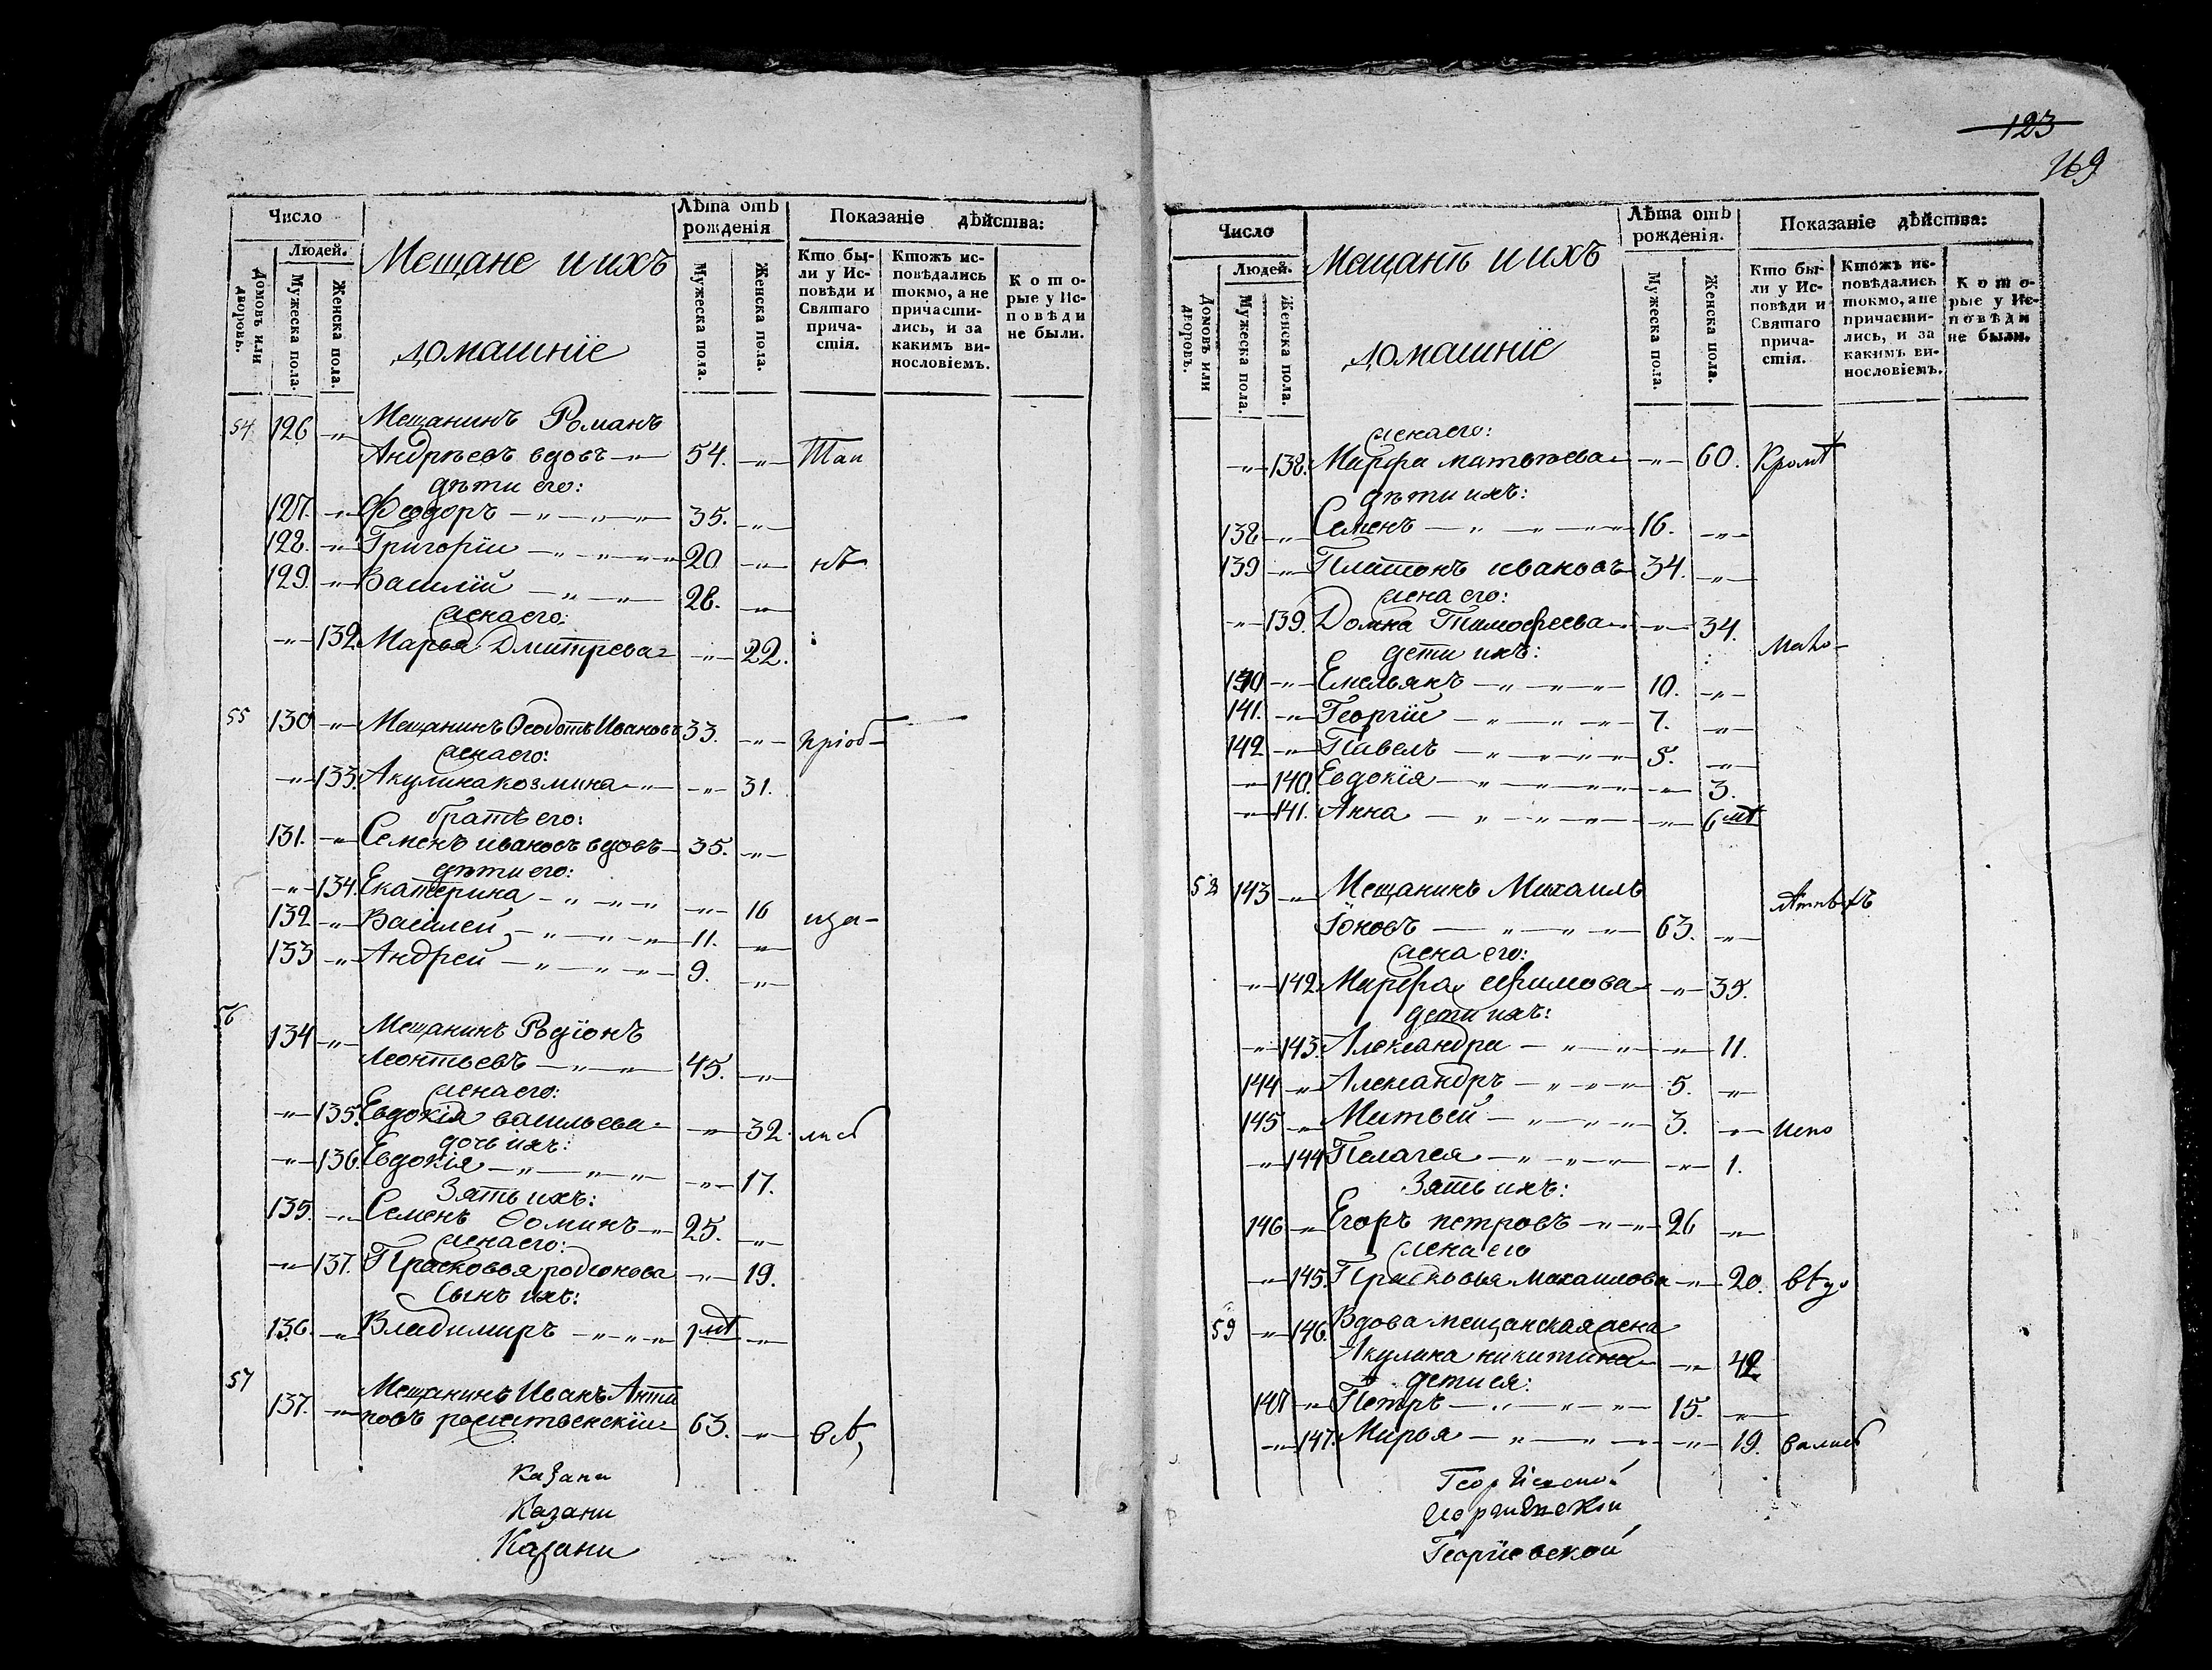 Число
Людей.
Домовъ или дворовъ.
Мужеска пола.
Женска пола.
Мещане и ихъ
домашніе
Лѣта отъ рожденія
Мужеска пола.
Женска пола.
Показаніе дѣйства:
Кто бы-
ли у Ис-
повѣди и
Святаго
прича-
стія.
Ктожъ ис-
повѣдались
токмо, а не
причасти-
лись, и за
какимъ ви-
нословіемъ.
Кото-
рые у Ис-
повѣди
не были.
54 126 -"- Мещанинъ Романъ
Андреевъ вдовъ -"- 54. -"- Так
дѣти его:
127. -"- Феодоръ -"-"- 35. -"-
128. -"- Григорій -"-"- 20 -"- нѣ
129. -"- Василій -"-"- 28. -"-
жена его:
-"- 132. Марья Дмитрева -"- 22.
55 130 -"- Мещанинъ Ѳеодотъ Ивановъ 33. -"- пріоб-
жена его:
-"- 133. Акулина козмина -"- -"- 31.
братъ его:
131. -"- Семенъ ивановъ вдовъ 35. -"-
дѣти его:
-"- 134. Екатерина -"-"- -"- 16
132 -"- Василей -"-"- 11. -"- ща-
133 -"- Андрей -"-"- 9. -"-
56 134 -"- Мещанинъ Родіонъ
Леонтьевъ -"-"- 45. -"-
жена его:
-"- 135. Евдокія васильева -"- 32. лись
дочь ихъ:
-"- 136. Евдокія -"-"- -"- 17.
Зять ихъ:
135. -"- Семенъ Ѳоминъ -"- 25. -"-
жена его:
-"- 137. Прасковья родіонова -"- 19.
Сынъ ихъ:
136. -"- Владимиръ -"-"- 1 мѣ -"-
57 137. -"- Мещанинъ Иванъ Анти
повъ рожественскій 63. -"- вѣ,
Казани
Казани
Казани
123
169
Число
Людей.
Домовъ или дворовъ.
Мужеска пола.
Женска пола.
Мещанѣ и ихъ
домашніе
Лѣта отъ рожденія.
Мужеска пола.
Женска пола.
Показаніе дѣйства:
Кто бы-
ли у Ис-
повѣди и
Святаго
прича-
стія.
Ктожъ ис-
повѣдались
токмо, а не
причасти-
лись, и за
какимъ ви-
нословіемъ.
Кото-
рые у Ис-
повѣди
не были.
жена его:
-"- 138. Марфа матвѣева -"- 60. Кромѣ
дѣти ихъ:
138 -"- Семенъ -"-"- 16. -"-
139 -"- Платонъ ивановъ 34. -"-
жена его:
-"- 139. Домна Тимофеева -"- 34. Мало-
дети ихъ:
140 -"- Емельянъ -"-"- 10. -"-
141. -"- Георгій -"-"- 7. -"-
142 -"- Павелъ -"-"- 5. -"-
-"- 140. Евдокія -"-"- -"- 3.
-"- 141. Анна -"-"- -"- 6 мѣ
58 143 -"- Мещанинъ Михаилъ
Іоновъ -"-"- 63. -"-
жена его:
-"- 142. Марфа ефимова -"- 35.
дети ихъ:
-"- 143. Александра -"-"- -"- 11.
144 -"- Александръ -"-"- 5. -"-
145 -"- Матвей -"-"- 3. -"- испо
-"- 144 Пелагея -"-"- -"- 1.
Зять ихъ:
146 -"- Егоръ петровъ -"-"- 26 -"-
жена его
-"- 145. Прасковья михаилова -"- 20. вѣдо
59 -"- 146. Вдова мещанская жена
Акулина никитина -"- 42
дети ея:
147 -"- Петръ -"-"- 15. -"-
-"- 147. Марья -"-"- -"- 19. вались
Георгіевской